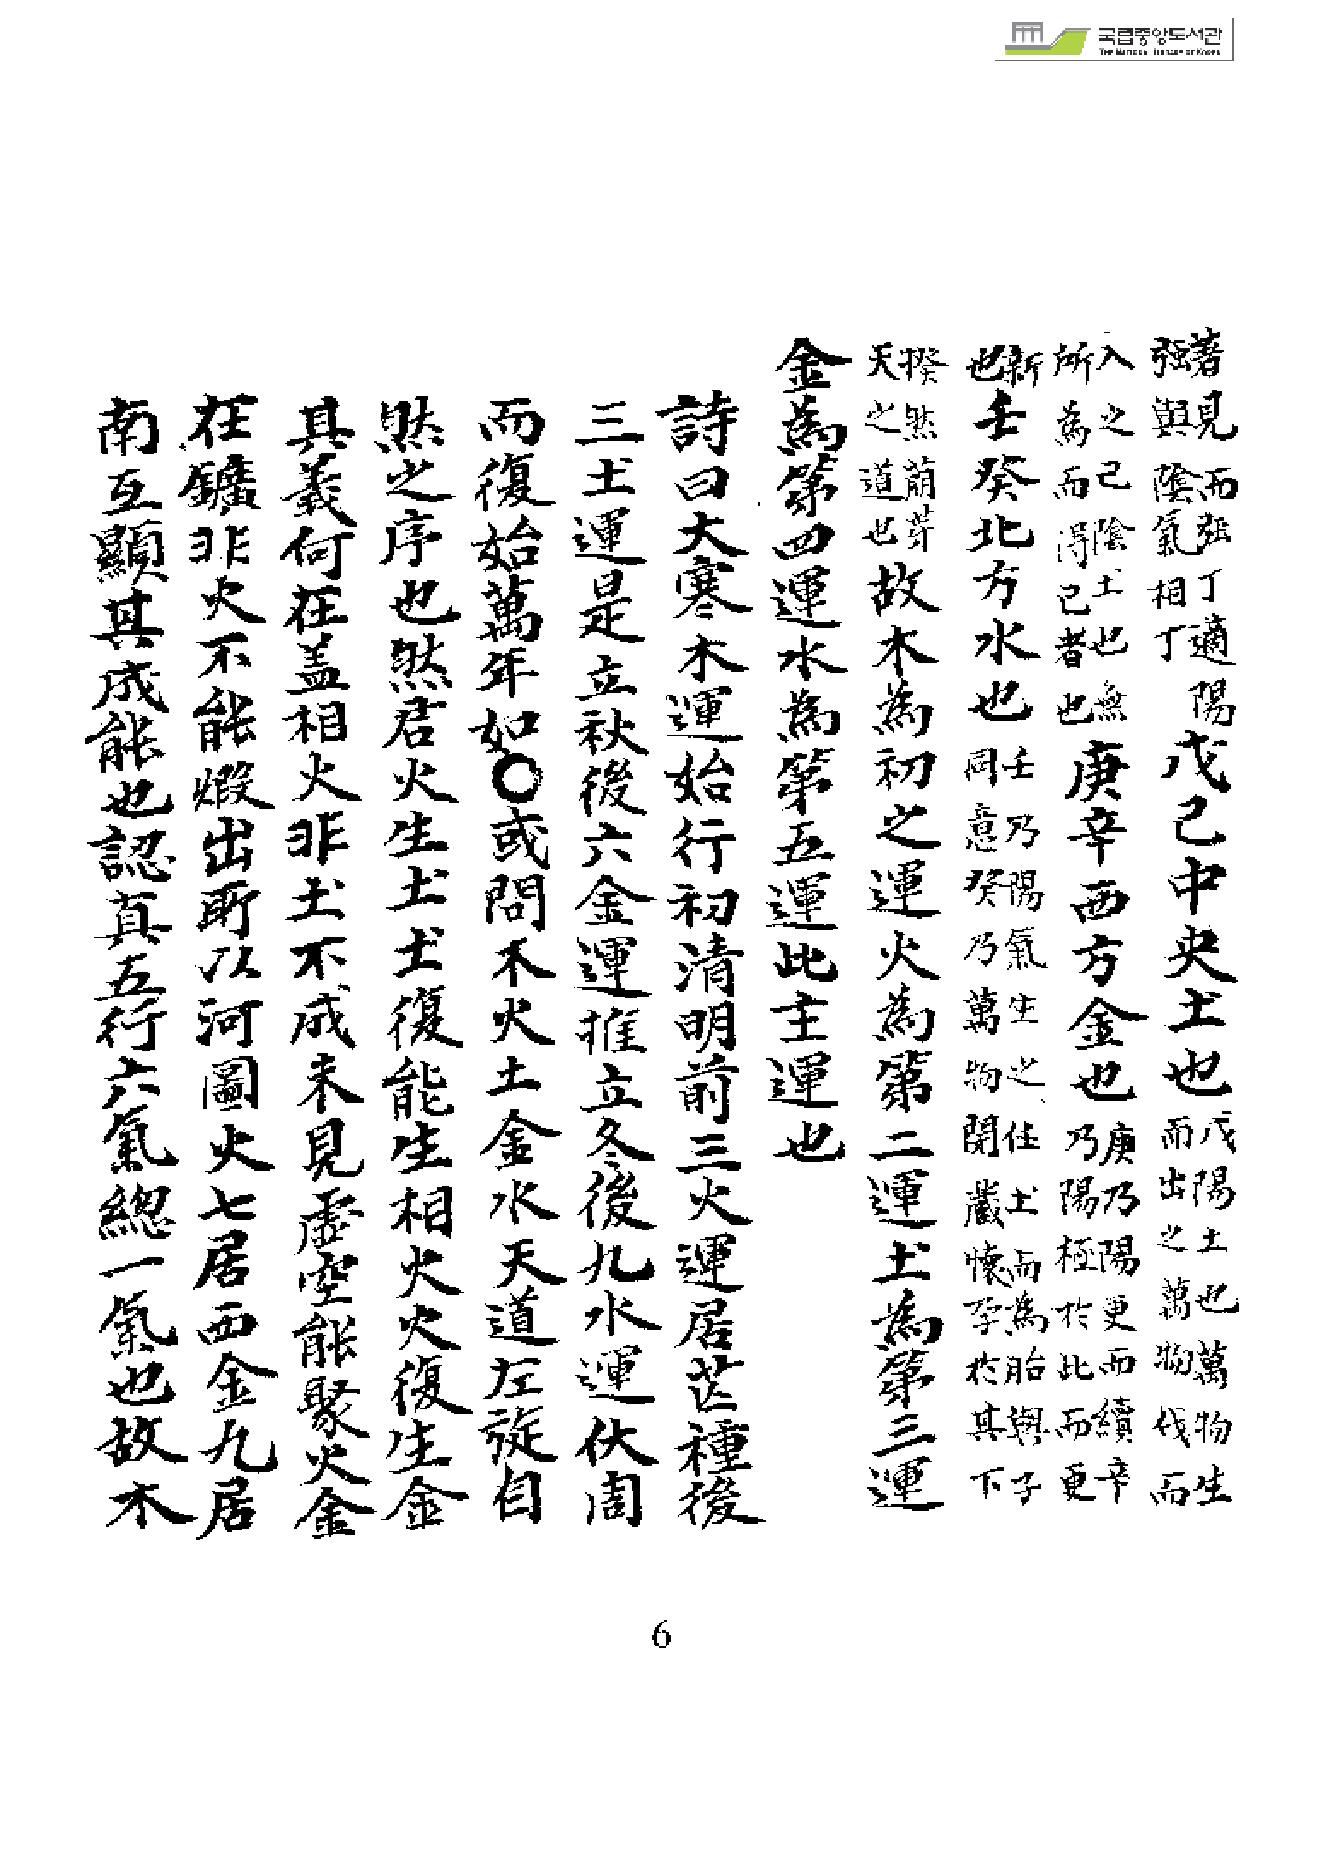 국립중앙도서관
THE NATIONAL LIBRARY OF KOREA
著見而强丁適陽
强與陰氣相丁
戊己中央土也
戊陽土也萬物生
而出之萬物伐而
入之己陰土也無
所為而得己者也
庚辛西方金也
庚乃陽更而續辛
乃陽極於此而更
新
也
壬癸北方水也
壬乃陽氣生之任土而為胎與子
同意癸乃萬物閉藏懷孕於其下
揆然萠芽
天之道也
故木為初之運火為第二運土為第三運
金為第四運水為第五運此主運也
詩曰大寒木運始行初清明前三火運居芒種後
三土運是立秋後六金運推立冬後九水運伏周
而復始萬年如○或問木火土金水天道左旋自
然之序也然君火生土土復能生相火火復生金
其義何在盖相火非土不成未見虛空能聚火金
在鑛非火不能煅出所以河圖火七居西金九居
南互顯其成能也認真五行六氣總一氣也故木
6